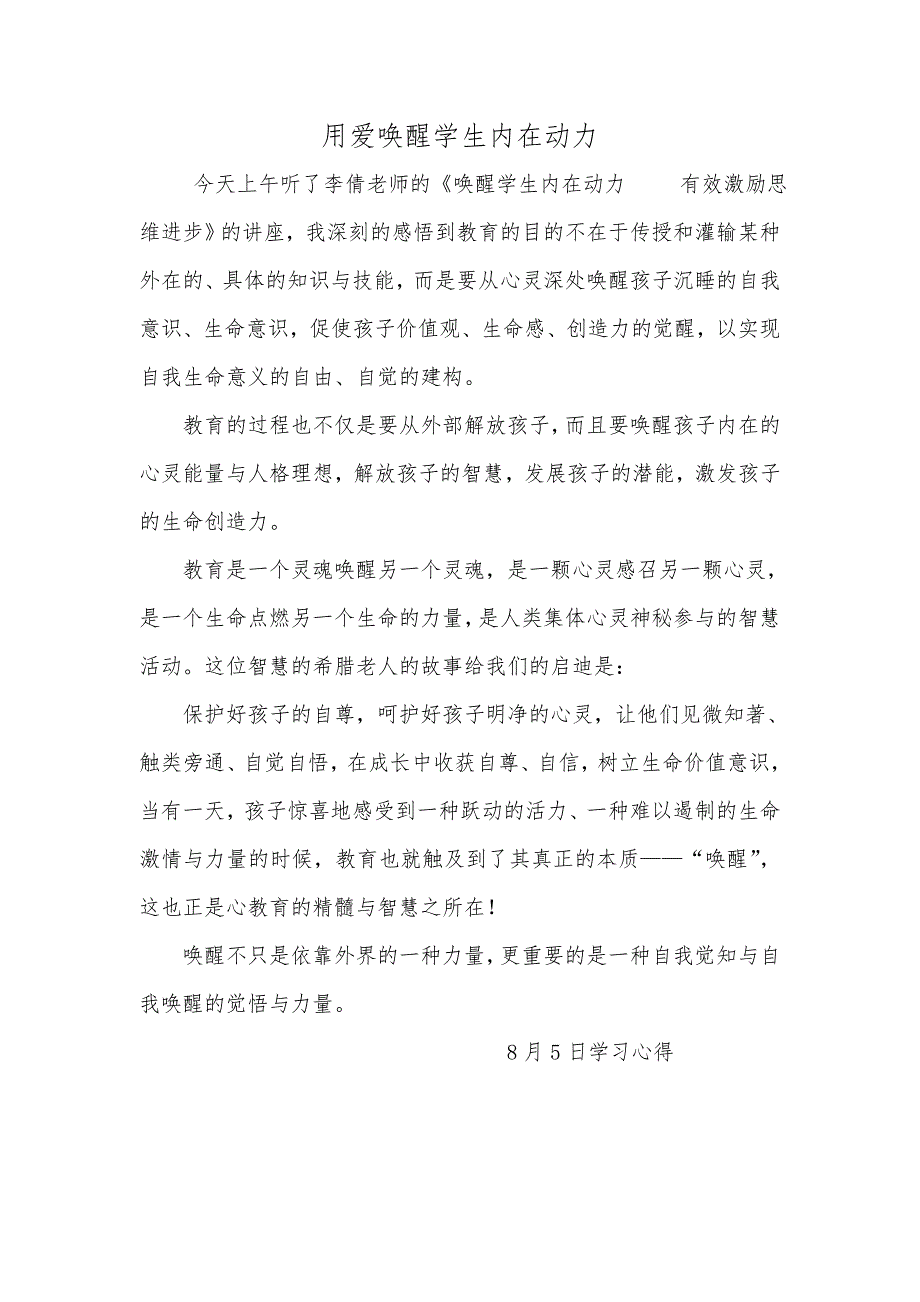 用爱唤醒学生内在动力
今天上午听了李倩老师的《唤醒学生内在动力 有效激励思
维进步》的讲座，我深刻的感悟到教育的目的不在于传授和灌输某种
外在的、具体的知识与技能，而是要从心灵深处唤醒孩子沉睡的自我
意识、生命意识，促使孩子价值观、生命感、创造力的觉醒，以实现
自我生命意义的自由、自觉的建构。
教育的过程也不仅是要从外部解放孩子，而且要唤醒孩子内在的
心灵能量与人格理想，解放孩子的智慧，发展孩子的潜能，激发孩子
的生命创造力。
教育是一个灵魂唤醒另一个灵魂，是一颗心灵感召另一颗心灵，
是一个生命点燃另一个生命的力量，是人类集体心灵神秘参与的智慧
活动。这位智慧的希腊老人的故事给我们的启迪是：
保护好孩子的自尊，呵护好孩子明净的心灵，让他们见微知著、
触类旁通、自觉自悟，在成长中收获自尊、自信，树立生命价值意识，
当有一天，孩子惊喜地感受到一种跃动的活力、一种难以遏制的生命
激情与力量的时候，教育也就触及到了其真正的本质——“唤醒”，
这也正是心教育的精髓与智慧之所在！
唤醒不只是依靠外界的一种力量，更重要的是一种自我觉知与自
我唤醒的觉悟与力量。
8月5日学习心得